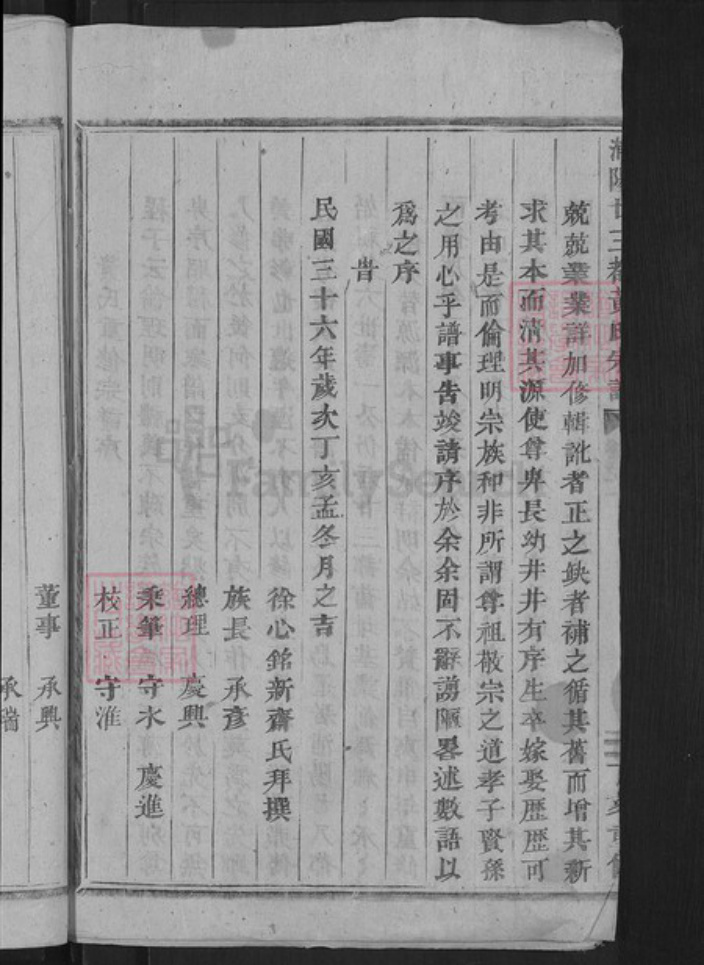 兢兢業業詳加修輯訛者正之缺者補之循其舊而增其新
求其本而清其源使尊卑長幼井井有序生卒嫁娶歷歷可
考由是而倫理明宗族和非所謂尊祖敬宗之道孝子賢孫
之用心乎譜事告竣請序於余余固不辭謭陋畧述數語以
爲之序
旹
民國三十六年歲次丁亥孟冬月之吉
徐心銘新齋氏拜撰
族長 承彥
總理 慶興
秉筆 守水 慶進
校正 守淮
董事 承興
承瑞
FamilySearch